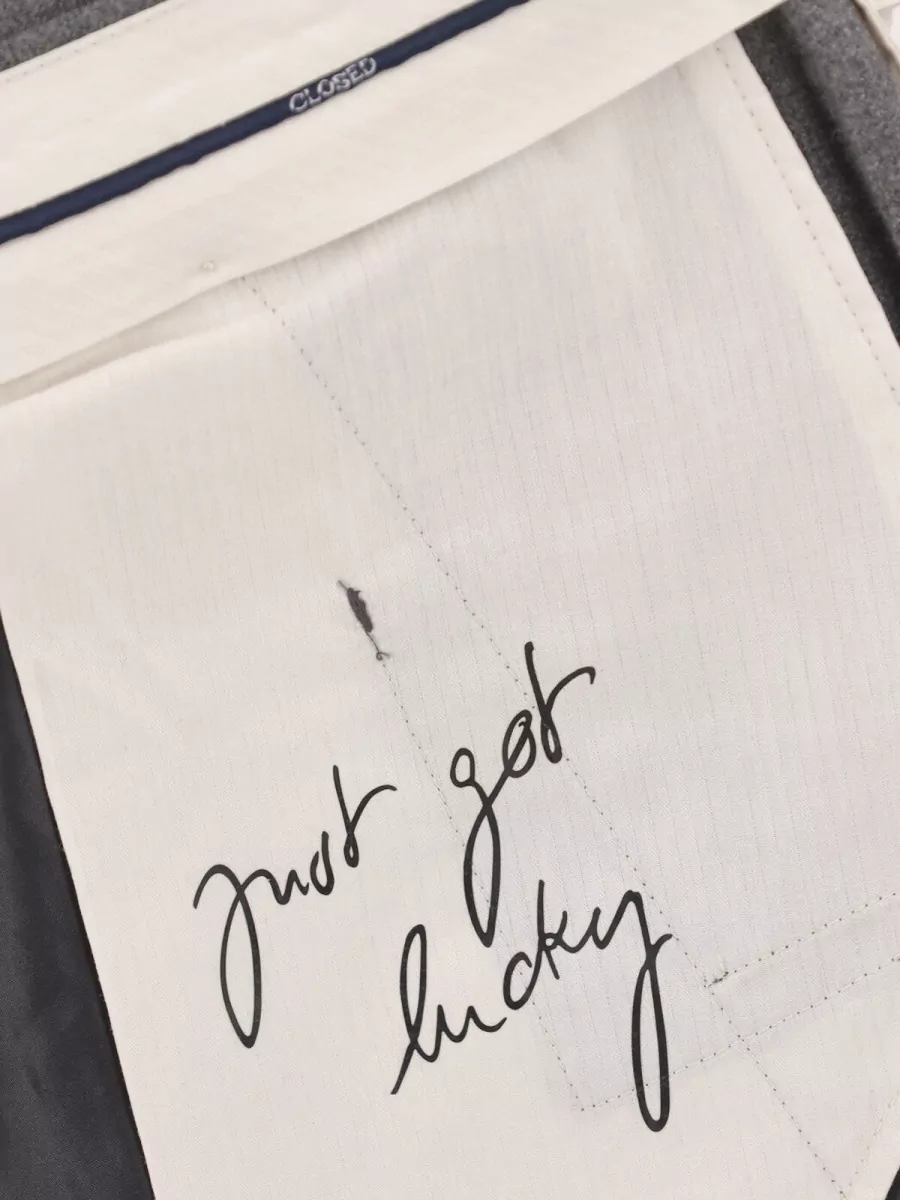 CLOSED
just got
lucky